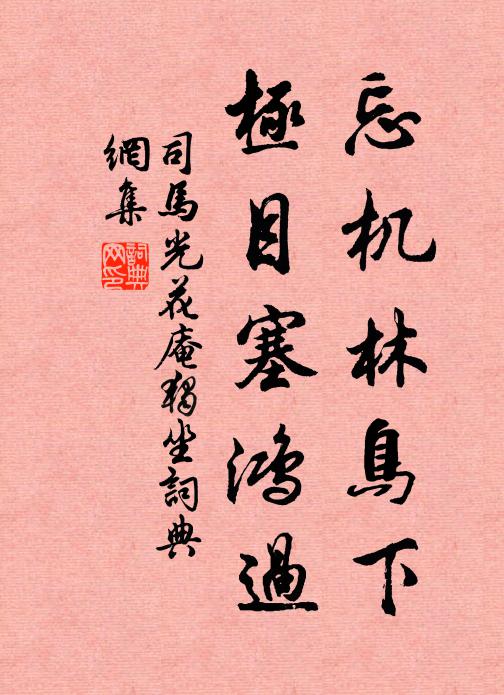 忘机林鳥下
極目塞鴻過
司馬光花庵獨坐詞典
網集
詞典網印